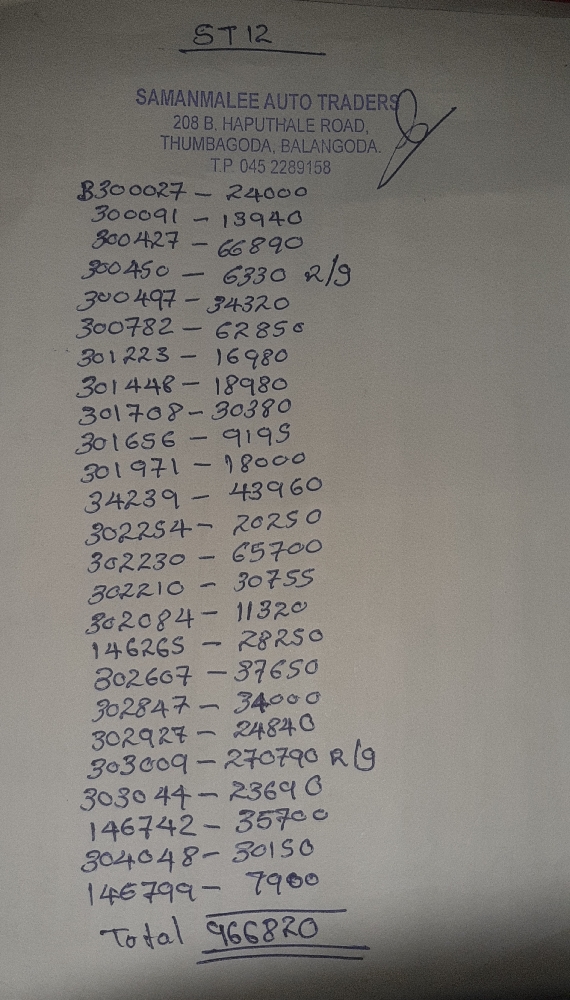 ST12
SAMANMALEE AUTO TRADERS
208 B, HAPUTHALE ROAD,
THUMBAGODA, BALANGODA.
T.P. 045 2289158
B300027 - 24000
300091 - 13940
300427 - 66890
300450 - 6330 R/G
300497 - 34320
300782 - 62850
301223 - 16980
301448 - 18980
301708 - 30380
301656 - 9195
301971 - 18000
34239 - 43960
302254 - 20250
302230 - 65700
302210 - 30755
302084 - 11320
146265 - 28250
302607 - 37650
302847 - 34000
302927 - 24840
303009 - 270790 R/G
303044 - 23690
146742 - 35700
304048 - 30150
146799 - 7900
Total 966820